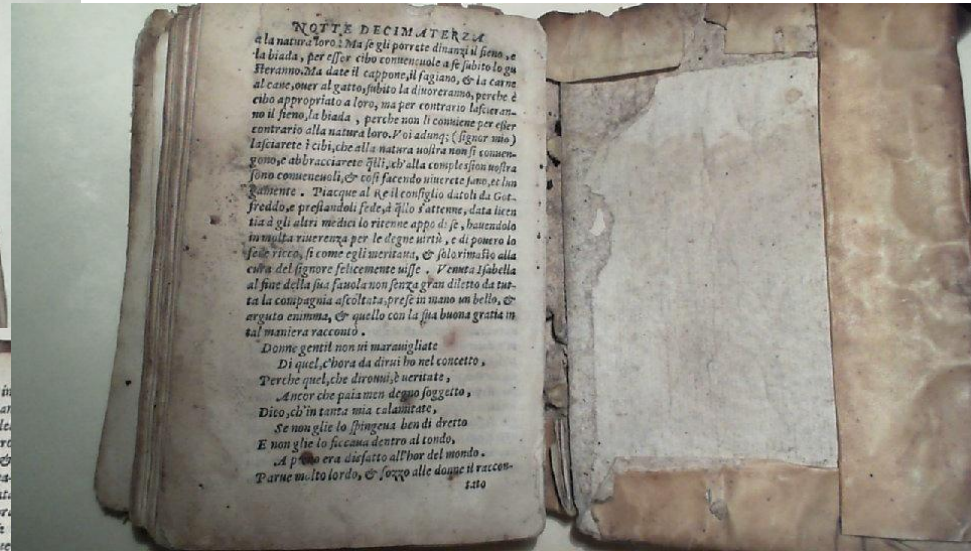 NOTTE DECIMATERZA
a la natura loro: Ma se gli porrete dinanzi il fieno, e
la biada, per esser cibo conueneuole a se subito lo gu
steranno. Ma date il cappone, il fagiano, & la carne
al cane, ouer al gatto, subito la diuoreranno, perche è
cibo appropriato a loro, ma per contrario lascieran-
no il fieno, la biada, perche non li conuiene per esser
contrario alla natura loro. Voi adunq; (signor mio)
lasciarete i cibi, che alla natura uostra non si conuen-
gono, e abbracciarete q̃lli, ch'alla complession uostra
sono conueneuoli, & cosi facendo uiuerete sano, et lun
gamente. Piacque al Re il consiglio datoli da Got
freddo, e prestandoli fede, à q̃llo s'attenne, data licen
tia à gli altri medici lo ritenne appo di se, hauendolo
in molta riuerenza per le degne uirtù, e di pouero lo
fece ricco, si come egli meritaua, & solo rimasto alla
cura del signore felicemente uisse. Venuta Isabella
al fine della sua fauola non senza gran diletto da tut-
ta la compagnia ascoltata, prese in mano un bello, &
arguto enimma, & quello con la sua buona gratia in
tal maniera raccontò.
Donne gentil non ui marauigliate
Di quel, c'hora da dirui ho nel concetto,
Perche quel, che dirouui, è ueritate,
Ancor che paia men degno soggetto,
Dico, ch'in tanta mia calamitate,
Se non glie lo spingeua ben di dretto
E non glie lo ficcaua dentro al tondo,
A pieno era disfatto all'hor del mondo.
Parue molto lordo, & sozzo alle donne il raccon-
tato